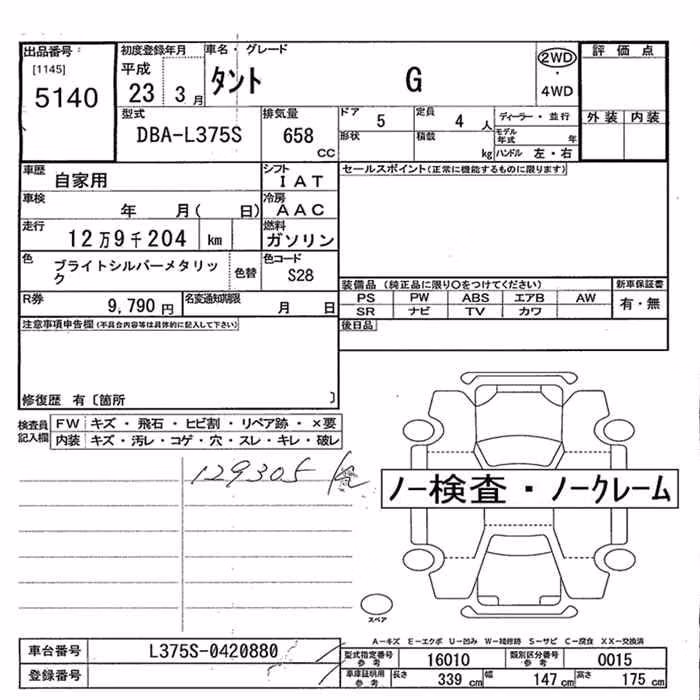 出品番号
[1145]
5140
初度登録年月
平成
23 3 月
車名・グレード
タント G
2WD
・
4WD
評価点
外装 内装
型式
DBA-L375S
排気量
658
CC
ドア 5
定員 4 人
ディーラー・並行
形状
積載 kg
モデル年式 年
ハンドル 左・右
車歴
自家用
シフト
IAT
セールスポイント(正常に機能するものに限ります)
車検
年 月( 日)
冷房
AAC
走行
12万9千204 km
燃料
ガソリン
色
ブライトシルバーメタリック
色替
色コード
S28
装備品(純正品に限り○をつけてください)
新車保証書
PS PW ABS エアB AW
有・無
SR ナビ TV カワ
R券
9,790 円
名変通知期限
月 日
後日品
注意事項申告欄(不具合内容等は具体的に記入して下さい)
修復歴 有〔箇所 〕
検査員記入欄
FW キズ・飛石・ヒビ割・リペア跡・×要
内装 キズ・汚レ・コゲ・穴・スレ・キレ・破レ
129305
ノー検査・ノークレーム
スペア
A-キズ E-エクボ U-凹み W-補修跡 S-サビ C-腐食 XX-交換済
車台番号
L375S-0420880
登録番号
型式指定番号参考
16010
類別区分番号参考
0015
車庫証明用参考
長さ 339 cm
幅 147 cm
高さ 175 cm